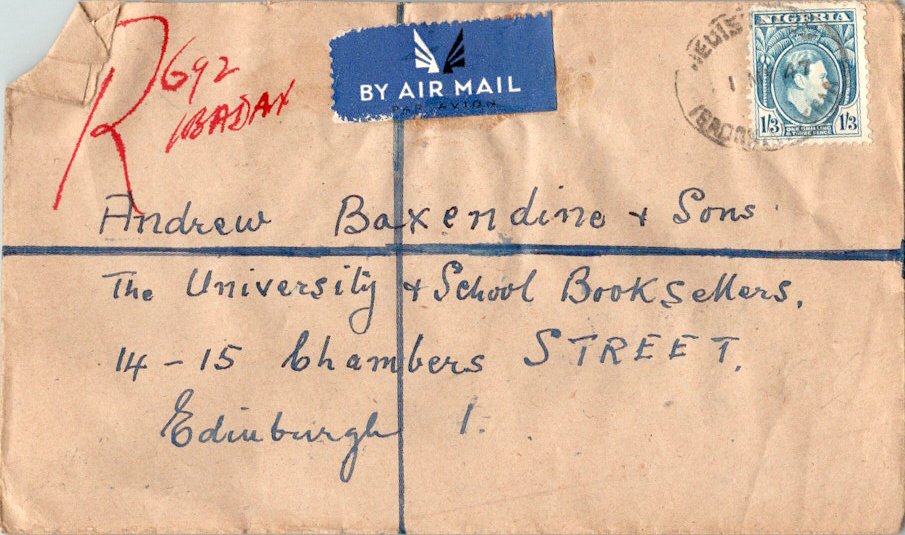 R 692
IBADAN
BY AIR MAIL
PAR AVION
NIGERIA
1/3 ONE SHILLING & THREE PENCE 1/3
Andrew Baxendine + Sons
The University + School Booksellers.
14-15 Chambers STREET.
Edinburgh 1.